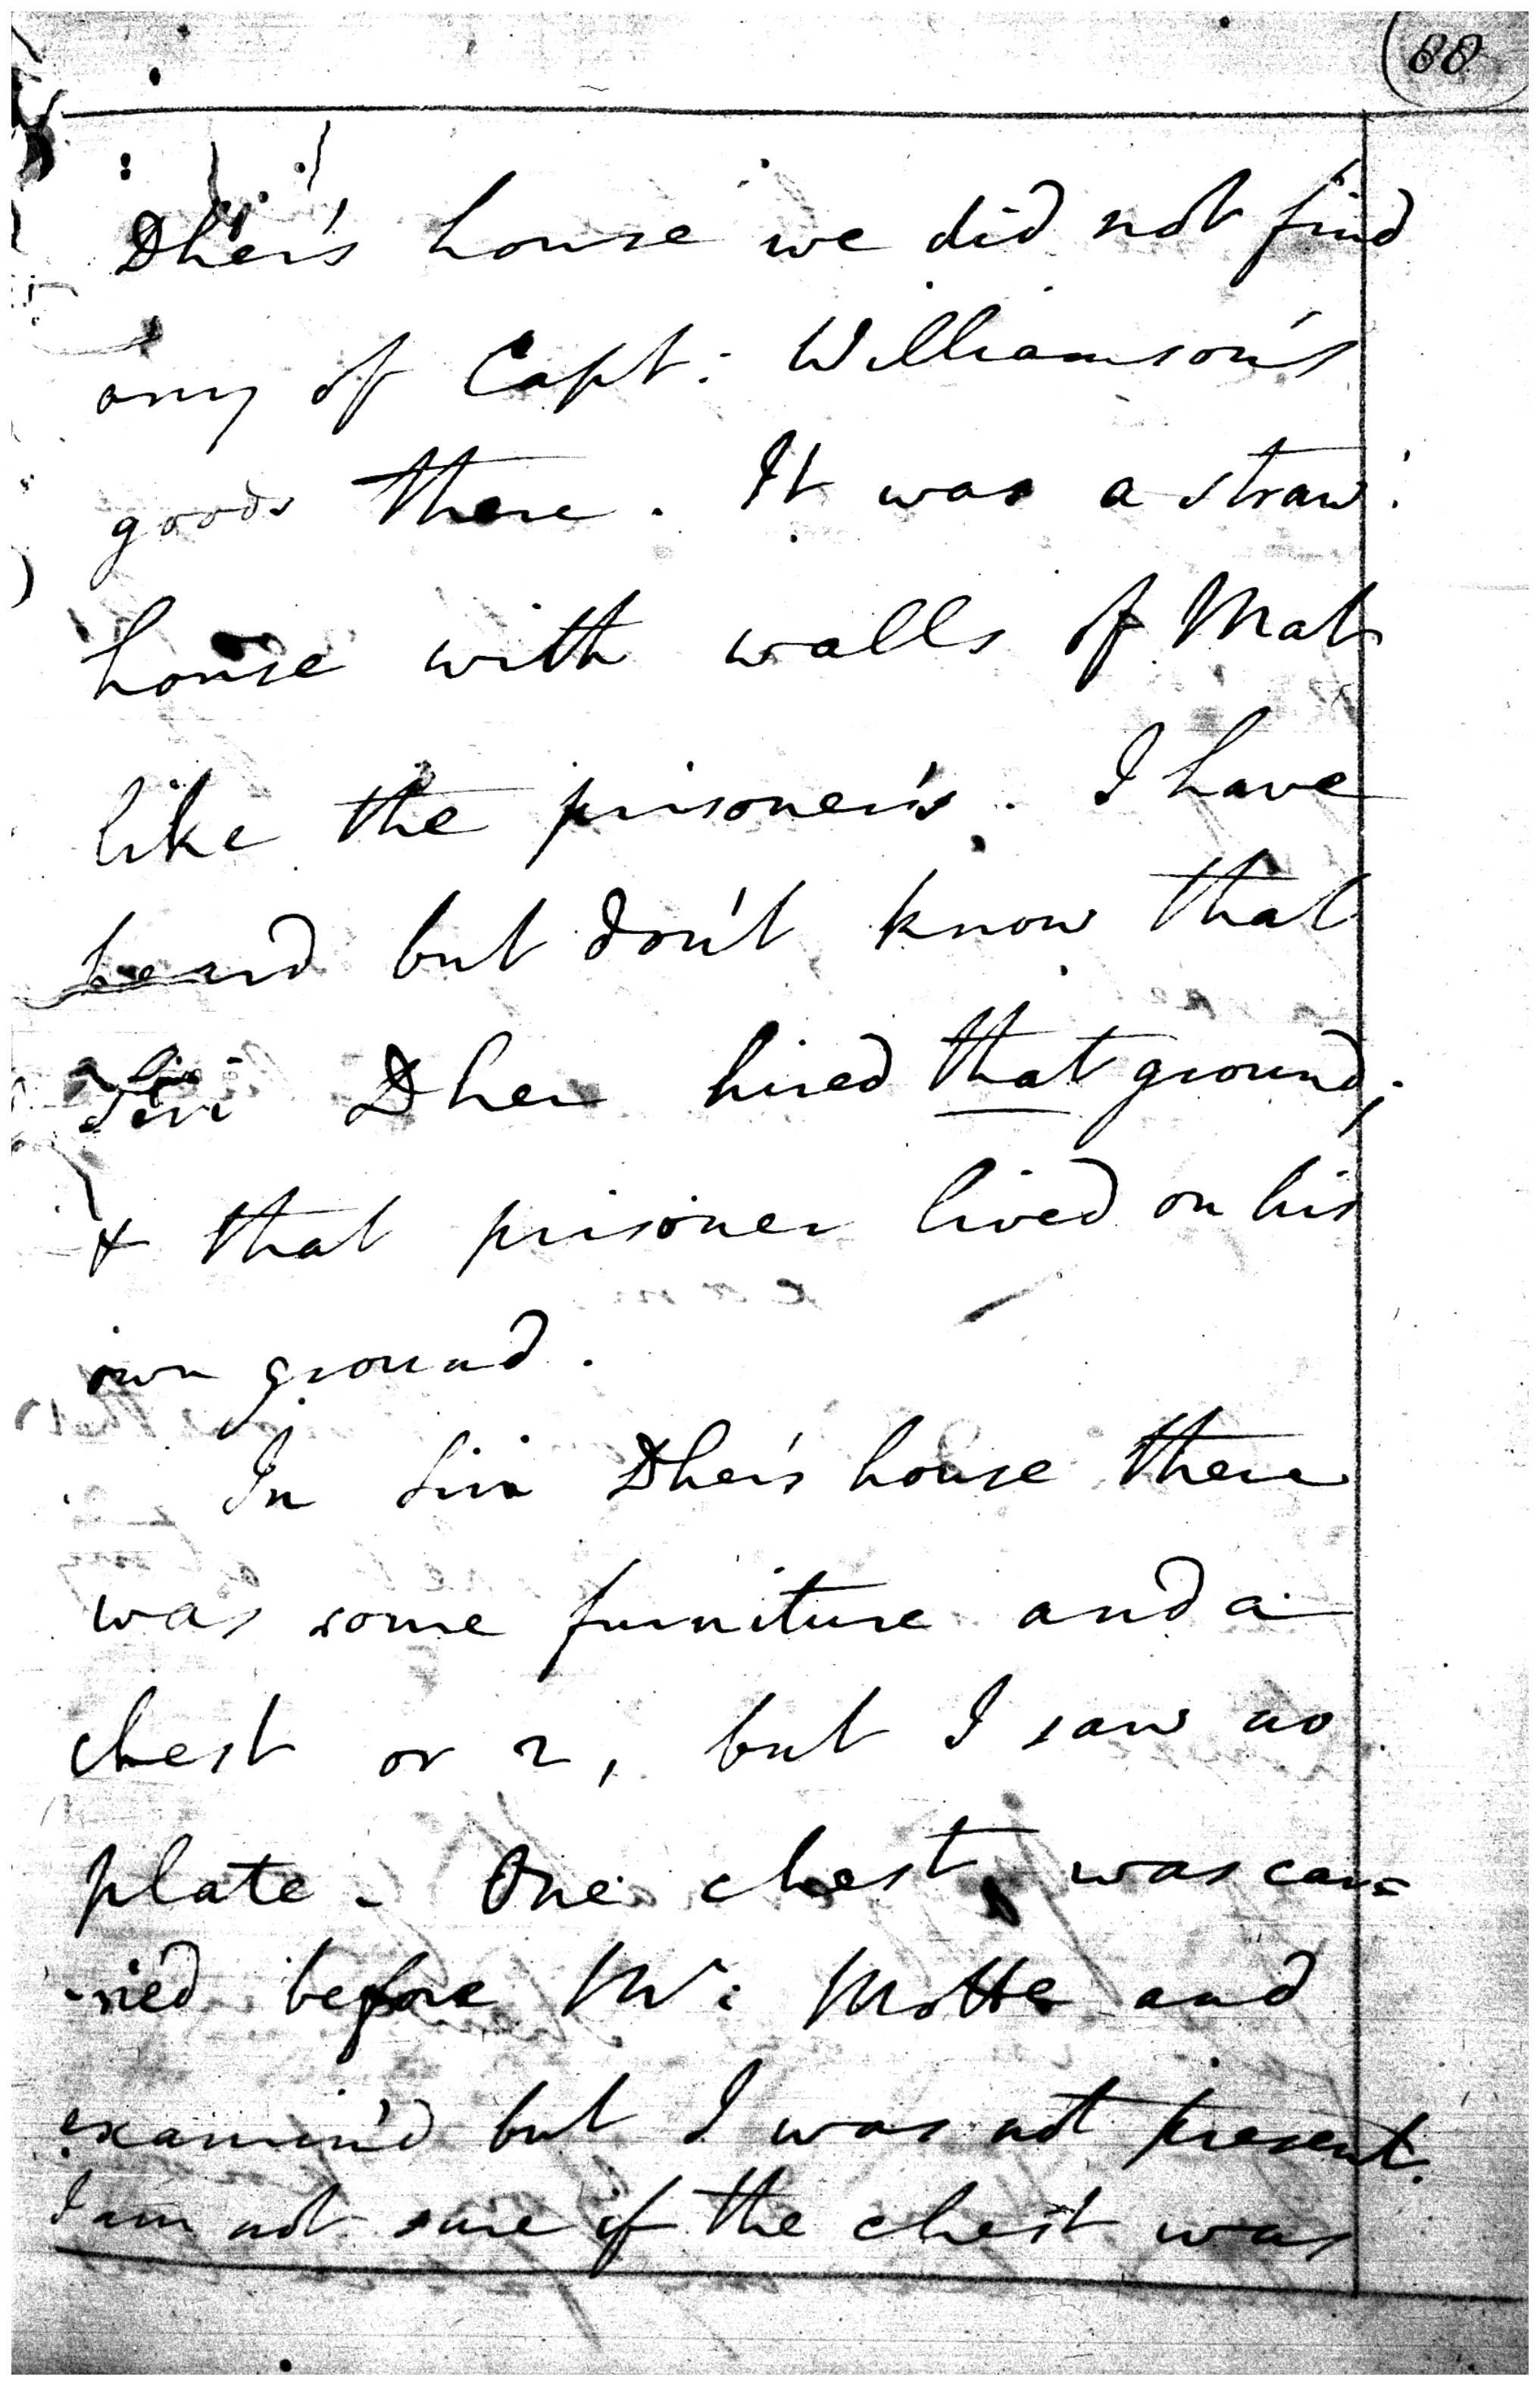 88
Dher's house we did not find
any of Capt: Williamson's
goods there. It was a straw
house with walls of Mat
like the prisoner's. I have
heard but don't know that
Siri Dher hired that ground;
& that prisoner lived on his
own ground.
In Siri Dher's house there
was some furniture and a
chest or 2, but I saw no
plate - One chest was car=
-ried before Mr: Motte and
examin'd but I was not present.
I am not sure if the chest was